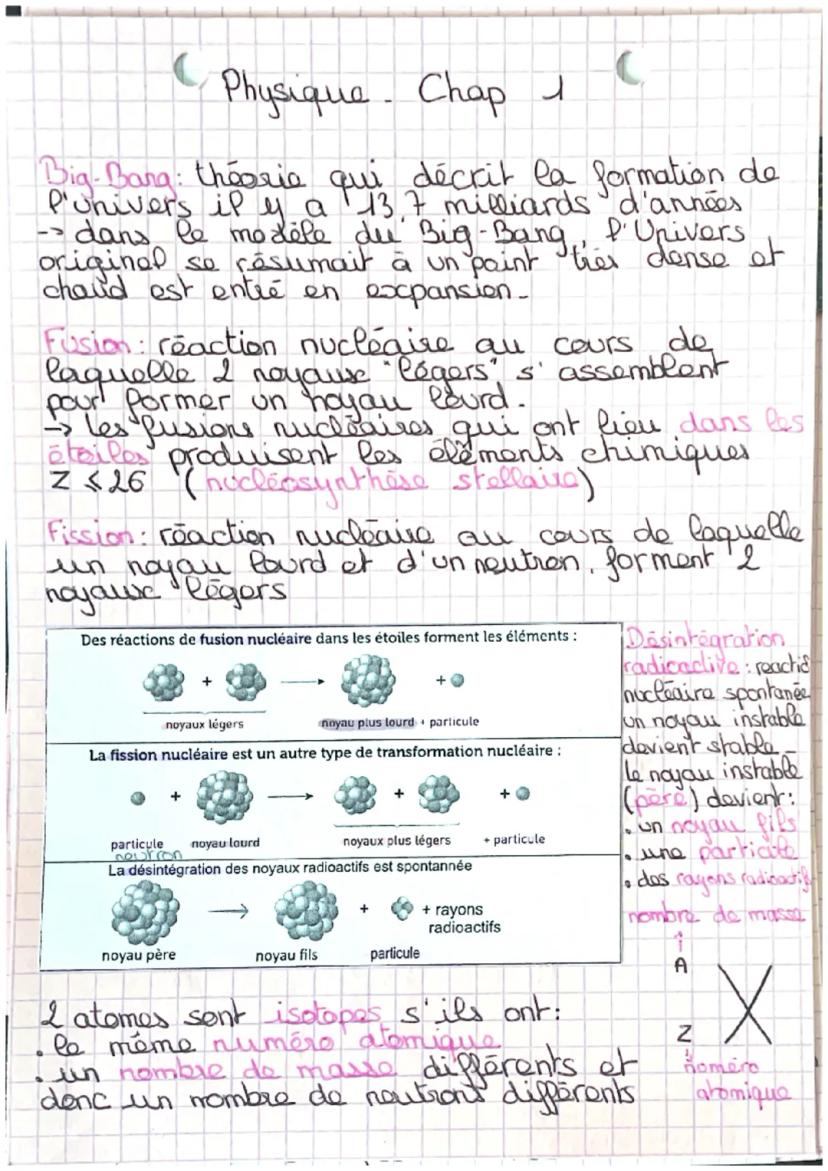 Physique - Chap 1
Big-Bang: théorie qui décrit la formation de
l'univers il y a 13,7 milliards d'années
-> dans le modèle du Big-Bang, l'Univers
original se résumait à un point très dense et
chaud est entré en expansion.
Fusion: réaction nucléaire au cours de
laquelle 2 noyaux "légers" s'assemblent
pour former un noyau lourd.
-> Les fusions nucléaires qui ont lieu dans les
étoiles produisent les éléments chimiques
Z ⩽ 26 (nucléosynthèse stellaire)
Fission: réaction nucléaire au cours de laquelle
un noyau lourd et d'un neutron, forment 2
noyaux légers
Des réactions de fusion nucléaire dans les étoiles forment les éléments :
+ → +
noyaux légers noyau plus lourd + particule
La fission nucléaire est un autre type de transformation nucléaire :
+ → + +
particule noyau lourd noyaux plus légers + particule
neutron
La désintégration des noyaux radioactifs est spontannée
→ + + rayons
radioactifs
noyau père noyau fils particule
Désintégration
radioactive: réactio
nucléaire spontanée
un noyau instable
devient stable -
Le noyau instable
(père) devient:
. un noyau fils
. une particule
. des rayons radioactifs
nombre de masse
↑
A
X
Z
↓
noméro
atomique
2 atomes sont isotopes s'ils ont:
. le même numéro atomique
. un nombre de masse différents et
donc un nombre de neutrons différents